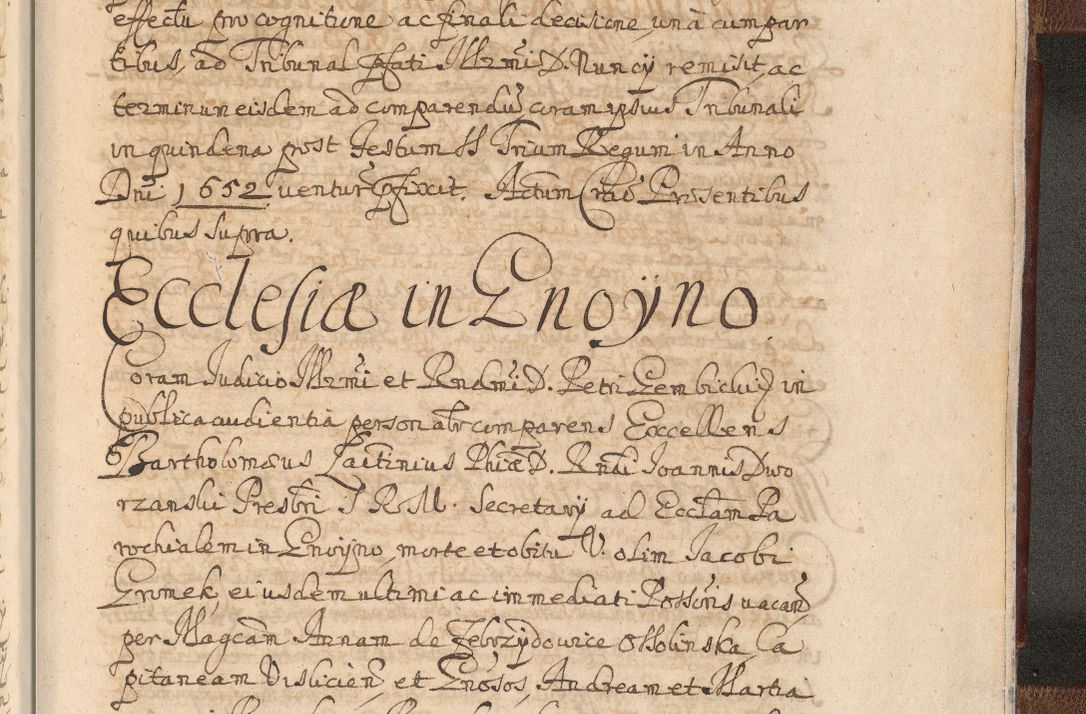 effectu pro cognitione ac finali decisione, unà cum par
tibus, ad Tribunal pfati Illrmi D. Nuncij remisit, ac
terminum eisdem ad comparendũ coram ipsius Tribunali
in quindena post Festum SS Trium Regum in Anno
Dni 1652 ventur pfixit. Actum Presentibus
quibus supra.
Ecclesiæ in Gnoÿno
Coram Judicio Illrmi et Rndmi D. Petri Gembickij in
publica audientia personalr comparens Excellens
Bartholomæus Phiæ D. Rndi Joannis Dwo
rzanski Presbri S R M. Secretarij ad Eccłam Pa
rochialem in Gnoÿno, morte et obitu V. olim Jacobi
Gromek, eiusdem ultimi ac immediati Possoris vacan
per Magcam Annam de Zebrzÿdowice Ossolinska Ca
pitaneam Vislicien, et Gnosos, Andream et Martia